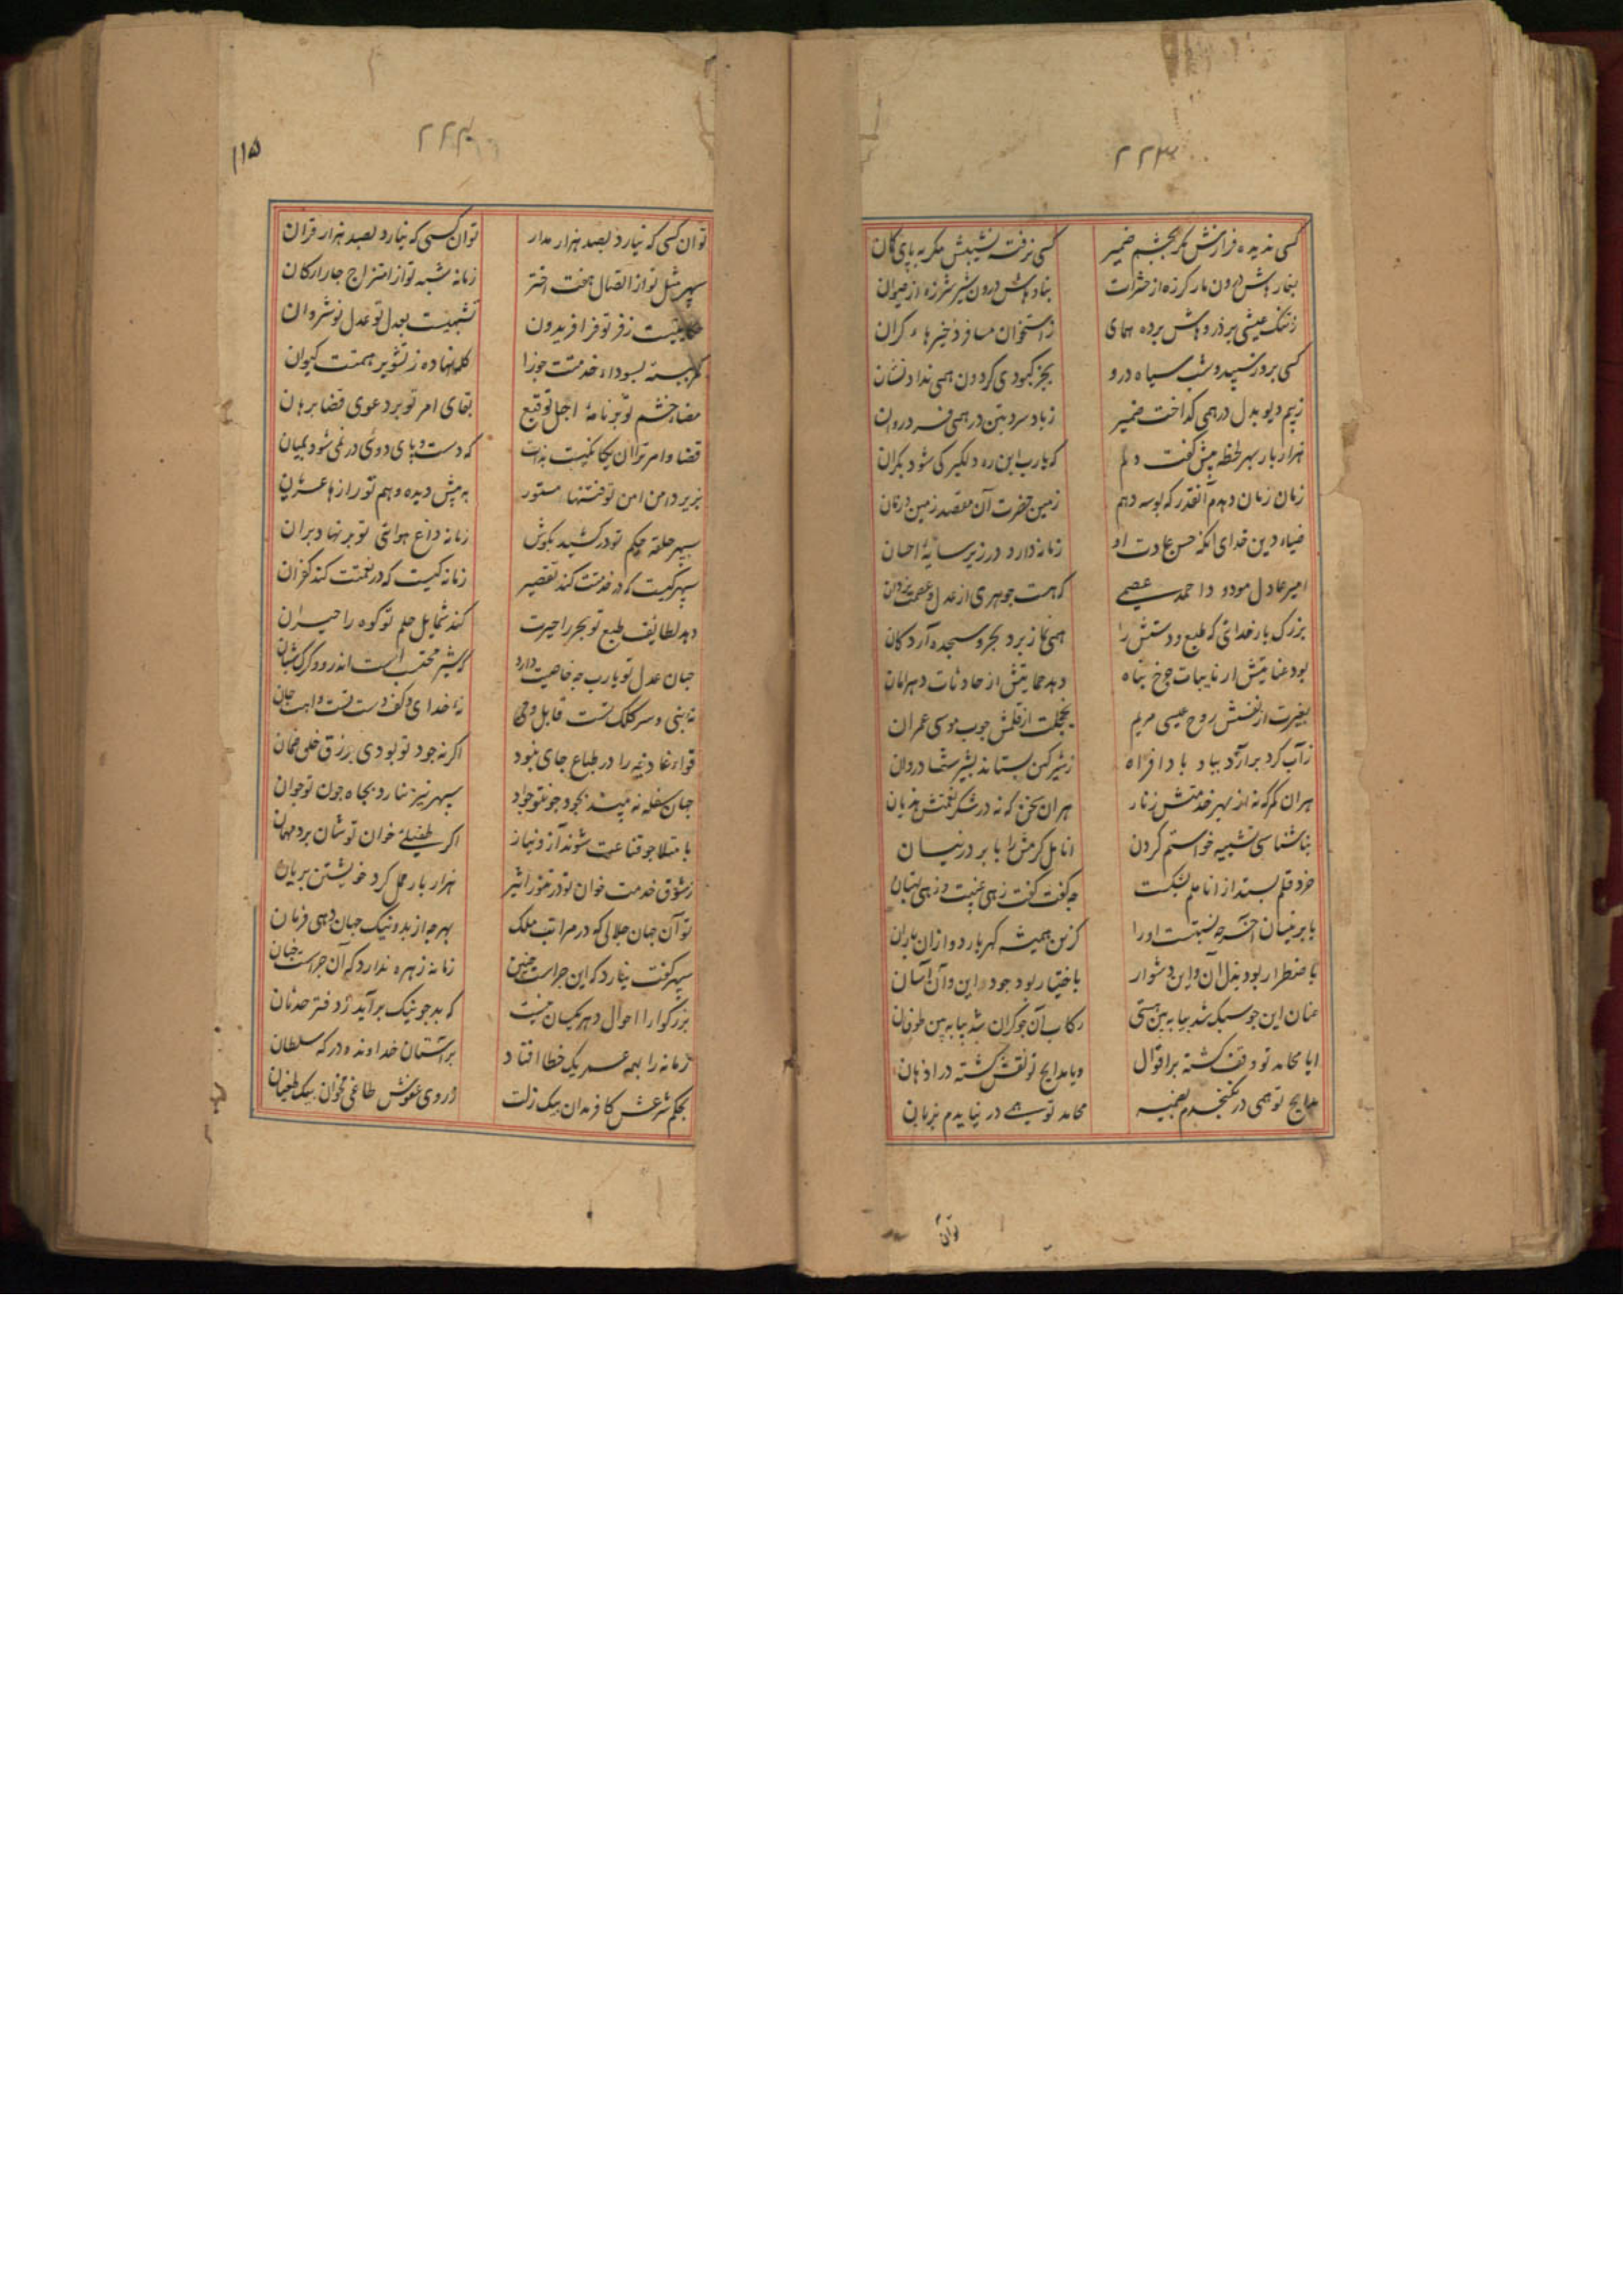 ۲۲۳
کسی ندیده فرازش مکر بچشم ضمیر کسی نرفته نشیبش مکر به پای کمان
بغارهاش درون مار کرزه از حشرات بنادهاش درون شیر شرزه از حیوان
ز تنک عیشی بر ذروهاش برده همای ز استخوان مسافر ذخیرهاء کران
کسی بروز سپید و شب سیاه درو بجز کبودی کردون همی نداد نشان
ز بیم دیو بدل در همی کداخت ضمیر ز باد سرد بتن در همی فسرد روان
هزار بار بهر لحظه بیش کفت دلم که یارب این ره دلکیر کی شود بکران
زمان زمان دهدم آنقدر که بوسه دهم زمین حضرت آن مقصد زمین و زمان
ضیاء دین خدای انکه حسن عادت او زمانه دارد در زیر سایهٔ احسان
امیر عادل مودود احمد عصمی که هست جوهری از عدل و عصمت یزدان
بزرک بار خدائی که طبع و دستش را همی نماز برد بحر و سجده آرد کان
بود عنایتش از نایبات چرخ پناه دهد حمایتش از حادثات دهر امان
بغیرت از نفسش روح عیسی مریم بخجلت از قلمش چوب موسی عمران
ز آب کرد برآرد بباد باد افراه ز شیر کین بستاند بشیر شادروان
هر ان کمر که نه از بهر خدمتش زنار هر ان سخن که نه در شکر نعمتش هذیان
بناشناسی تشبیه خواستم کردن انامل کرمش را بابر در نیسان
خرد قلم بستد از اناملم بشکست چه کفت کفت زهی غیبت و زهی بهتان
بابر نیسان آخر چه نسبتست او را کزین همیشه کهر بارد و از ان باران
باضطرار بود بذل آن و این دشوار باختیار بود جود این و آن آسان
عنان این چو سبک شد بیا به بین هستی رکاب آن چو کران شد بیا به بین طوفان
ایا محامد تو وقف کشته بر اقوال ویا مدایح تو نقش کشته در اذهان
مدایح تو همی در نکنجدم بضمیر محامد تو همی در نیایدم بزبان
توان
۱۱۵
توان کسی که نیارد بصد هزار مدار توان کسی که نیارد بصد هزار قران
سپهر مثل تو از اتصال هفت اختر زمانه شبه تو از امتزاج چار ارکان
حکایتیست ز فر تو فر افریدون تشبهیست بعدل تو عدل نوشروان
کمر ببسته بسوداء خدمتت جوزا کله نهاده ز تشویر همتت کیوان
مضاء خشم تو بر نامهٔ اجل توقیع بقای امر تو بر دعوی قضا برهان
قضا و امر تو ان یکانکیست بذات که دست و پای دوئی در نمی شود بمیان
بزیر دامن امن تو فتنها مستور به پیش دیده وهم تو رازها عریان
سپهر حلقه حکم تو در کشید بکوش زمانه داغ هوای تو بر نهاد بران
سپهر کیست که در خدمتت کند تقصیر زمانه کیست که در نعمتت کند کفران
دهد لطائف طبع تو بحر را حیرت کند شمایل حلم تو کوه را حیران
جهان عدل تو یارب چه خاصیت دارد که شیر محتسب است اندرو و کرک شبان
نه نبی و سر کلک تست قابل وحی نه خدای و کف دست تست واهب جان
قواء غاذیه را در طباع جای نبود اکر نه جود تو بودی برزق خلق ضمان
جهان سفله نه بیند بجود چون تو جواد سپهر نیز نیارد بجاه چون تو جوان
با متلا چو قناعت شوند آز و نیاز اکر طفیلئ خوان تو شان برد مهمان
ز شوق خدمت خوان تو در تنور اثیر هزار بار حمل کرد خویشتن بریان
تو آن جهان جلالی که در مراتب ملک بهرچه از بد و نیک جهان دهی فرمان
سپهر کفت نیارد که این چراست چنین زمانه زهره ندارد که آن چراست چنان
بزرکوارا احوال دهر یکسان نیست که بد چو نیک برآید ز دفتر حدثان
زمانه را بهمه عمر یک خطا افتاد بر آستان خداوند و درکه سلطان
بحکم شرعش کافر مدان بیک زلت ز روی عفوش طاغی مخوان بیک طغیان